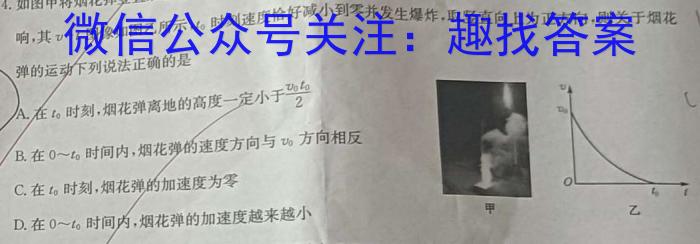 4. 如图甲将烟花
响,其 时刻速度恰好减小到零并发生爆炸,
关于烟花
微信公众号关注：趣找答案
弹的运动下列说法正确的是
A. 在 t₀ 时刻,烟花弹离地的高度一定小于 v₀t₀/2
B. 在 0～t₀ 时间内,烟花弹的速度方向与 v₀ 方向相反
C. 在 t₀ 时刻,烟花弹的加速度为零
D. 在 0～t₀ 时间内,烟花弹的加速度越来越小
甲
v
v₀
O
t₀
t
乙